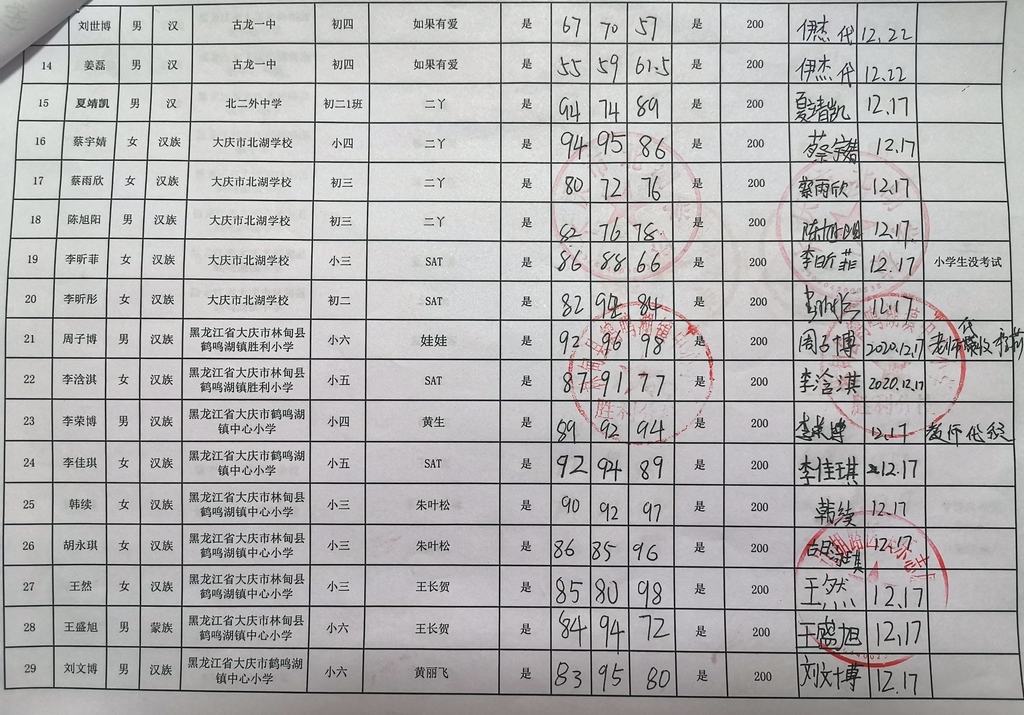 刘世博 男 汉 古龙一中 初四 如果有爱 是 67 70 57 是 200 伊杰代 12.22
14 姜磊 男 汉 古龙一中 初四 如果有爱 是 55 59 61.5 是 200 伊杰代 12.22
15 夏靖凯 男 汉 北二外中学 初二1班 二丫 是 94 74 89 是 200 夏靖凯 12.17
16 蔡宇婧 女 汉族 大庆市北湖学校 小四 二丫 是 94 95 86 是 200 蔡宇婧 12.17
17 蔡雨欣 女 汉族 大庆市北湖学校 初三 二丫 是 80 72 76 是 200 蔡雨欣 12.17
18 陈旭阳 男 汉族 大庆市北湖学校 初三 二丫 是 82 76 78 是 200 陈旭阳 12.17
19 李昕菲 女 汉族 大庆市北湖学校 小三 SAT 是 86 88 66 是 200 李昕菲 12.17 小学生没考试
20 李昕彤 女 汉族 大庆市北湖学校 初二 SAT 是 82 92 84 是 200 12.17
21 周子博 男 汉族 黑龙江省大庆市林甸县 小六 娃娃 是 92 96 98 是 200 周子博 2020.12.17 老师代
鹤鸣湖镇胜利小学
22 李浛淇 女 汉族 黑龙江省大庆市林甸县 小五 SAT 是 87 91 77 是 200 李浛淇 2020.12.17
鹤鸣湖镇胜利小学
23 李荣博 男 汉族 黑龙江省大庆市鹤鸣湖 小四 黄生 是 89 92 94 是 200 李荣博 12.17 教师代
镇中心小学
24 李佳琪 女 汉族 黑龙江省大庆市鹤鸣湖 小五 SAT 是 92 94 89 是 200 李佳琪 12.17
镇中心小学
25 韩续 女 汉族 黑龙江省大庆市林甸县 小三 朱叶松 是 90 92 97 是 200 韩续 12.17
鹤鸣湖镇中心小学
26 胡永琪 女 汉族 黑龙江省大庆市林甸县 小三 朱叶松 是 86 85 96 是 200 胡永琪 12.17
鹤鸣湖镇中心小学
27 王然 女 汉族 黑龙江省大庆市林甸县 小三 王长贺 是 85 80 98 是 200 王然 12.17
鹤鸣湖镇中心小学
28 王盛旭 男 蒙族 黑龙江省大庆市林甸县 小六 王长贺 是 84 94 72 是 200 王盛旭 12.17
鹤鸣湖镇中心小学
29 刘文博 男 汉族 黑龙江省大庆市鹤鸣湖 小六 黄丽飞 是 83 95 80 是 200 刘文博 12.17
镇中心小学